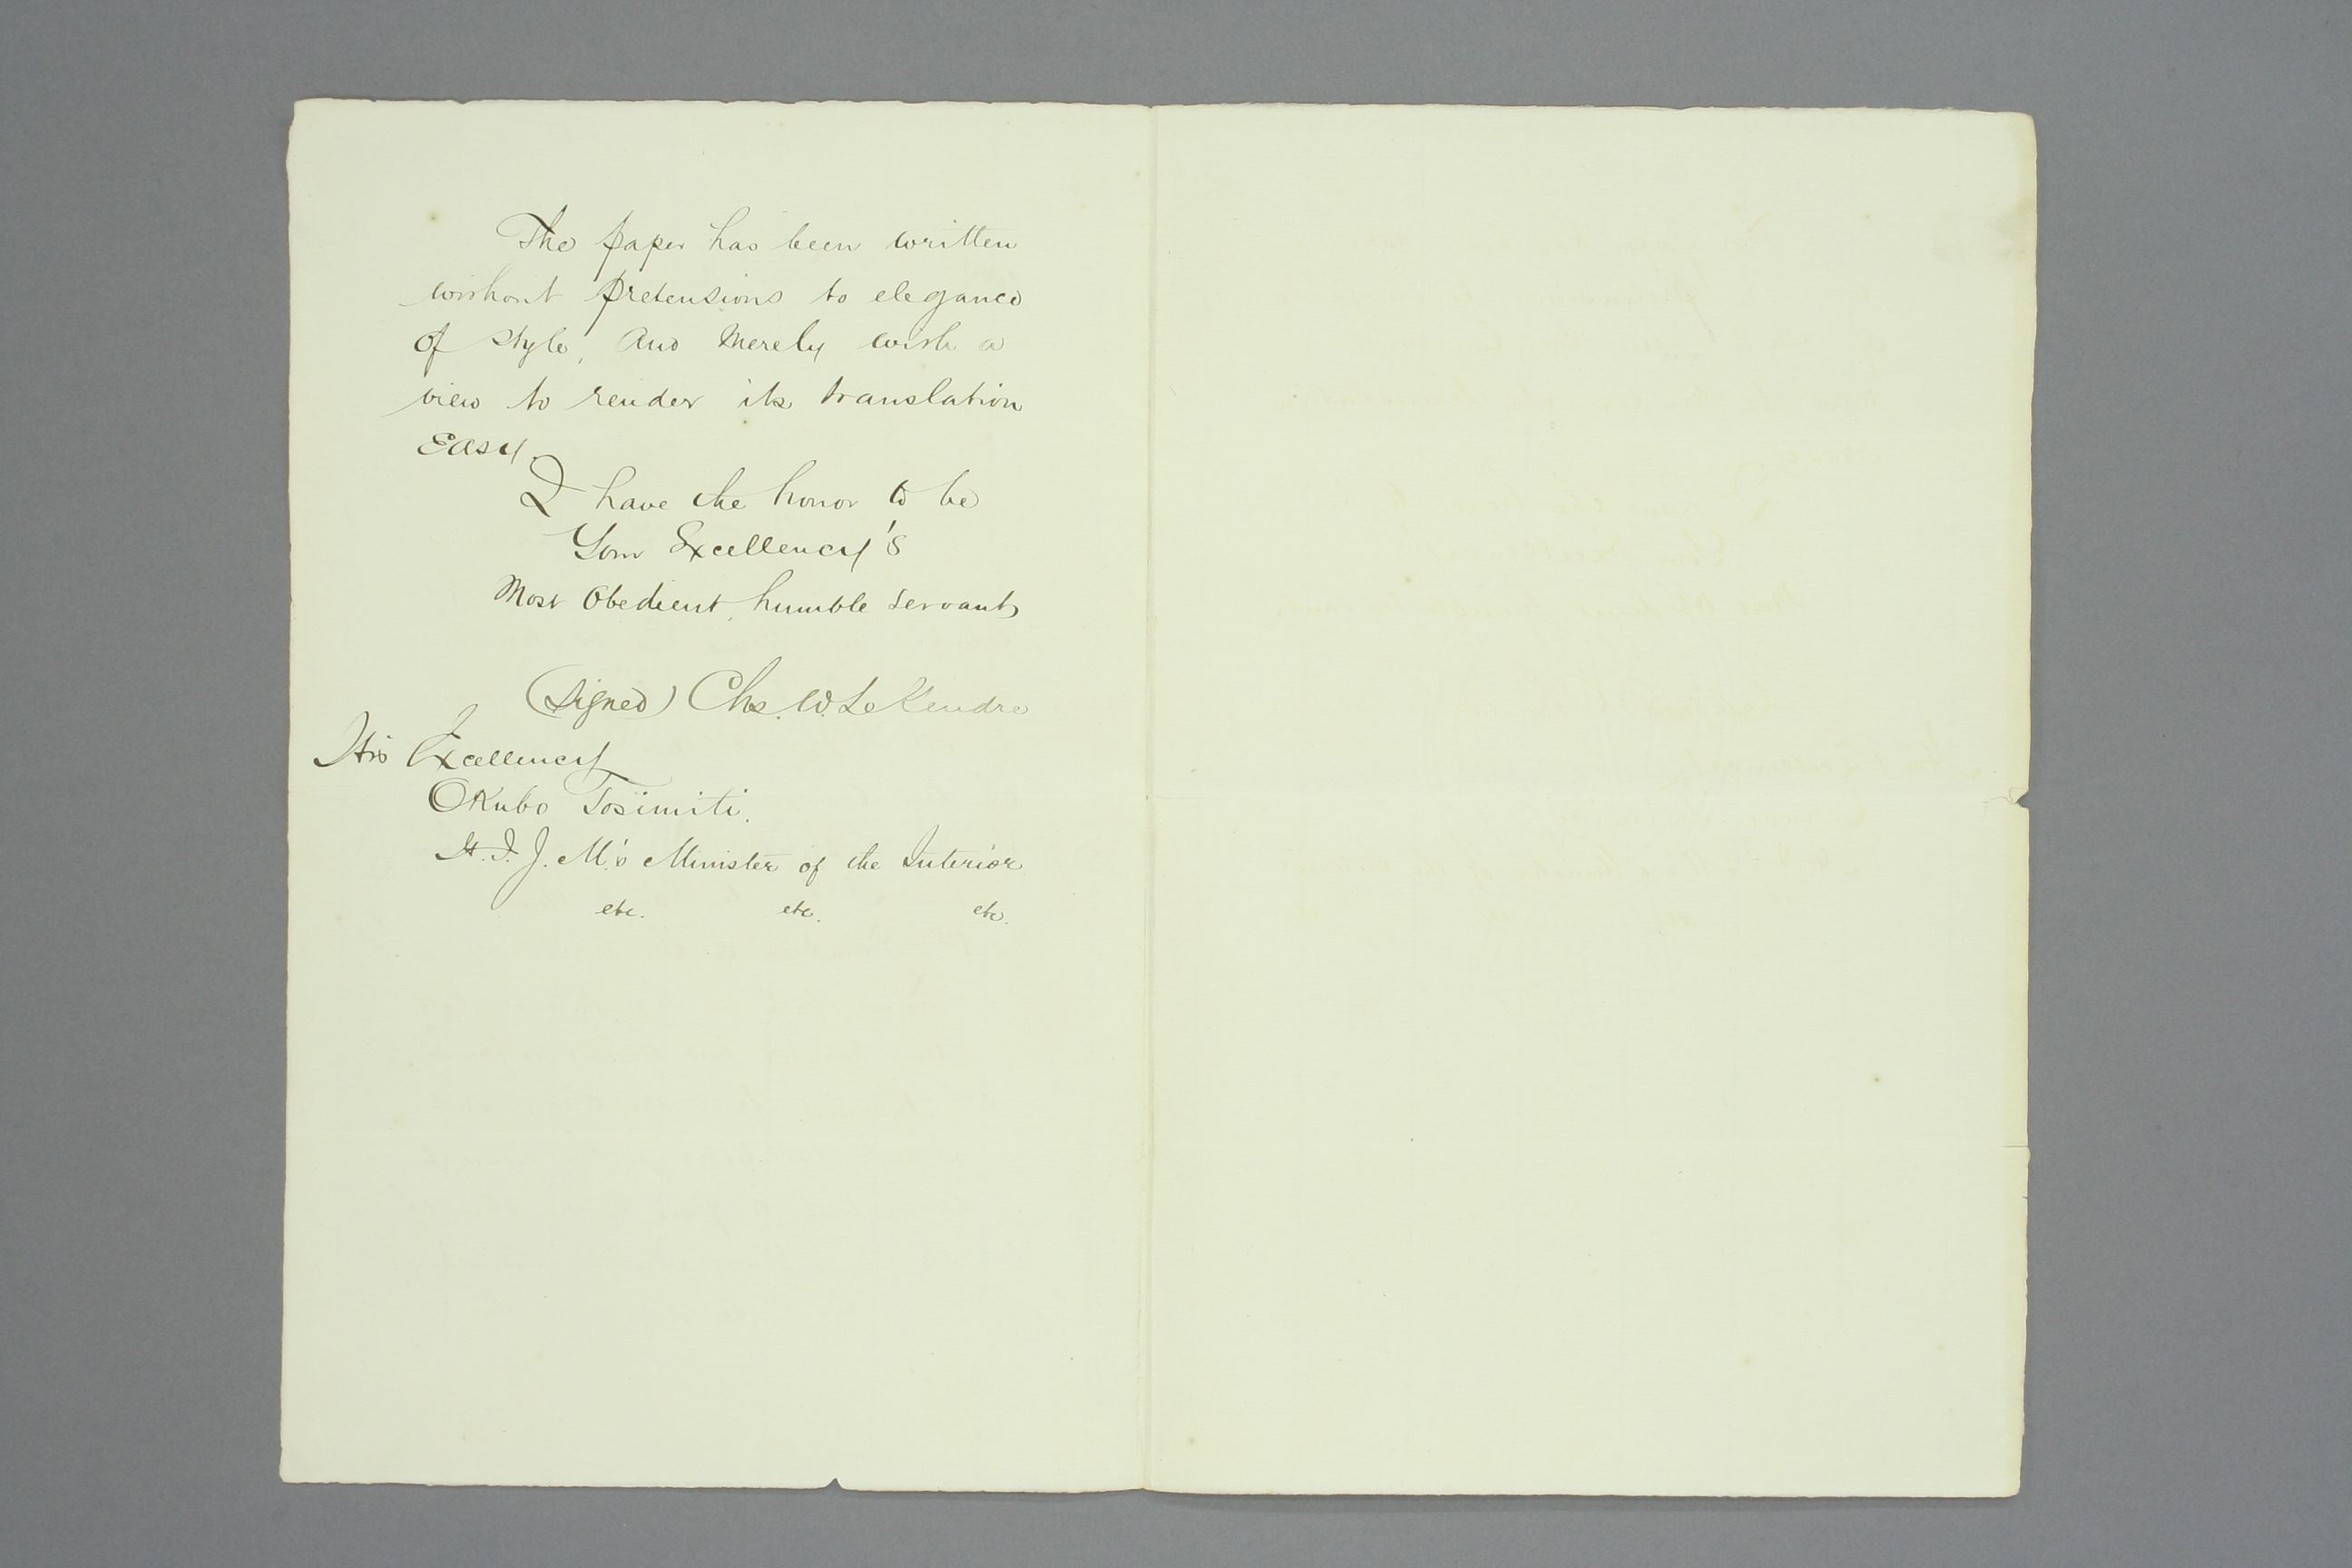 The paper has been written
without pretensions to elegance
of style, and merely with a
view to render its translation
Easy.
I have the honor to be
Your Excellency's
Most Obedient, humble servant
(signed) Chs. W. LeGendre
His Excellency
Okubo Tosimiti.
H. I. J. M.'s Minister of the Interior
etc. etc. etc.